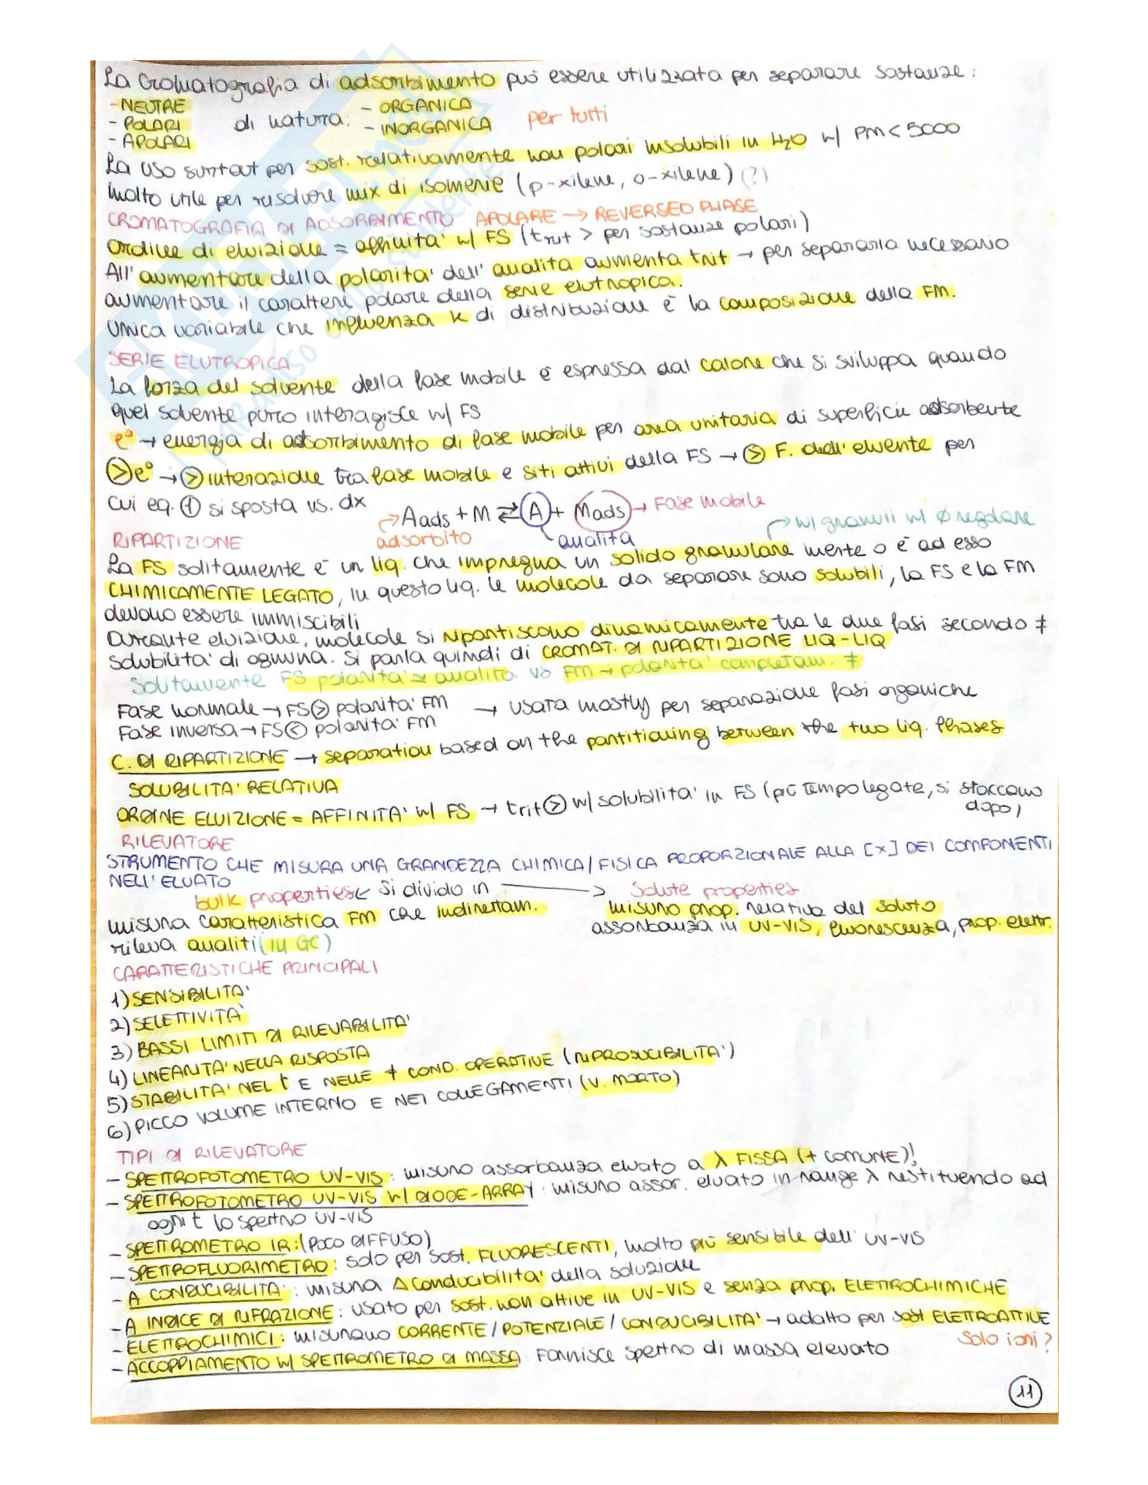 La cromatografia di adsorbimento può essere utilizzata per separare sostanze:
- NEUTRE
- POLARI
- APOLARI
di natura:
- ORGANICA
- INORGANICA
per tutti
La uso surtout per sost. relativamente non polari insolubili in H2O w/ PM < 5000
Molto utile per risolvere mix di isomerie (p-xilene, o-xilene) (?)
CROMATOGRAFIA DI ADSORBIMENTO APOLARE → REVERSED PHASE
Ordine di eluizione = affinità w/ FS (t rit > per sostanze polari)
All' aumentare della polarità dell' analita aumenta trit → per separarla necessario
aumentare il carattere polare della serie elutropica.
Unica variabile che influenza K di distribuzione è la composizione della FM.
SERIE ELUTROPICA
La forza del solvente della fase mobile è espressa dal calore che si sviluppa quando
quel solvente puro interagisce w/ FS
e° → energia di adsorbimento di fase mobile per area unitaria di superficie adsorbente
> e° → > interazione tra fase mobile e siti attivi della FS → > F. dell' eluente per
cui eq. ① si sposta vs. dx
Aads + M ⇄ A + Mads → Fase mobile
adsorbito
analita
→ w/ granuli w/ Ø regolare
RIPARTIZIONE
La FS solitamente è un liq. che impregna un solido granulare mente o è ad esso
CHIMICAMENTE LEGATO, in questo liq. le molecole da separare sono solubili, la FS e la FM
devono essere immiscibili
Durante eluizione, molecole si ripartiscono dinamicamente tra le due fasi secondo ≠
solubilità di ognuna. Si parla quindi di CROMAT. DI RIPARTIZIONE LIQ-LIQ
Solitamente FS polarità ≃ analita vs FM → polarità completam. ≠
Fase normale → FS > polarità FM → usata mostly per separazione fasi organiche
Fase inversa → FS < polarità FM
C. DI RIPARTIZIONE → separation based on the partitioning between the two liq. Phases
SOLUBILITA' RELATIVA
ORDINE ELUIZIONE = AFFINITA' w/ FS → trit > w/ solubilità in FS (più tempo legate, si staccano
dopo)
RILEVATORE
STRUMENTO CHE MISURA UNA GRANDEZZA CHIMICA/FISICA PROPORZIONALE ALLA [x] DEI COMPONENTI
NELL' ELUATO
bulk properties ← Si divido in → Solute properties
misura caratteristica FM che indirettam.
rileva analiti (in GC)
misuro prop. relativa del soluto
assorbanza in UV-VIS, fluorescenza, prop. elettr.
CARATTERISTICHE PRINCIPALI
1) SENSIBILITA'
2) SELETTIVITA'
3) BASSI LIMITI DI RILEVABILITA'
4) LINEARITA' NELLA RISPOSTA
5) STABILITA' NEL t E NELLE ≠ COND. OPERATIVE (RIPRODUCIBILITA')
6) PICCO VOLUME INTERNO E NEI COLLEGAMENTI (V. MORTO)
TIPI DI RILEVATORE
- SPETTROFOTOMETRO UV-VIS: misuro assorbanza eluato a λ FISSA (+ COMUNE)!
- SPETTROFOTOMETRO UV-VIS w/ DIODE-ARRAY: misuro assor. eluato in range λ restituendo ad
ogni t lo spettro UV-VIS
- SPETTROMETRO IR: (POCO DIFFUSO)
- SPETTROFLUORIMETRO: solo per sost. FLUORESCENTI, molto più sensibile dell' UV-VIS
- A CONDUCIBILITA': misura Δ conducibilità della soluzione
- A INDICE DI RIFRAZIONE: usato per sost. non attive in UV-VIS e senza prop. ELETTROCHIMICHE
- ELETTROCHIMICI: misurano CORRENTE/POTENZIALE/CONDUCIBILITA' → adatto per sost ELETTROATTIVE
Solo ioni?
- ACCOPPIAMENTO w/ SPETTROMETRO DI MASSA: Fornisce spettro di massa elevato
11